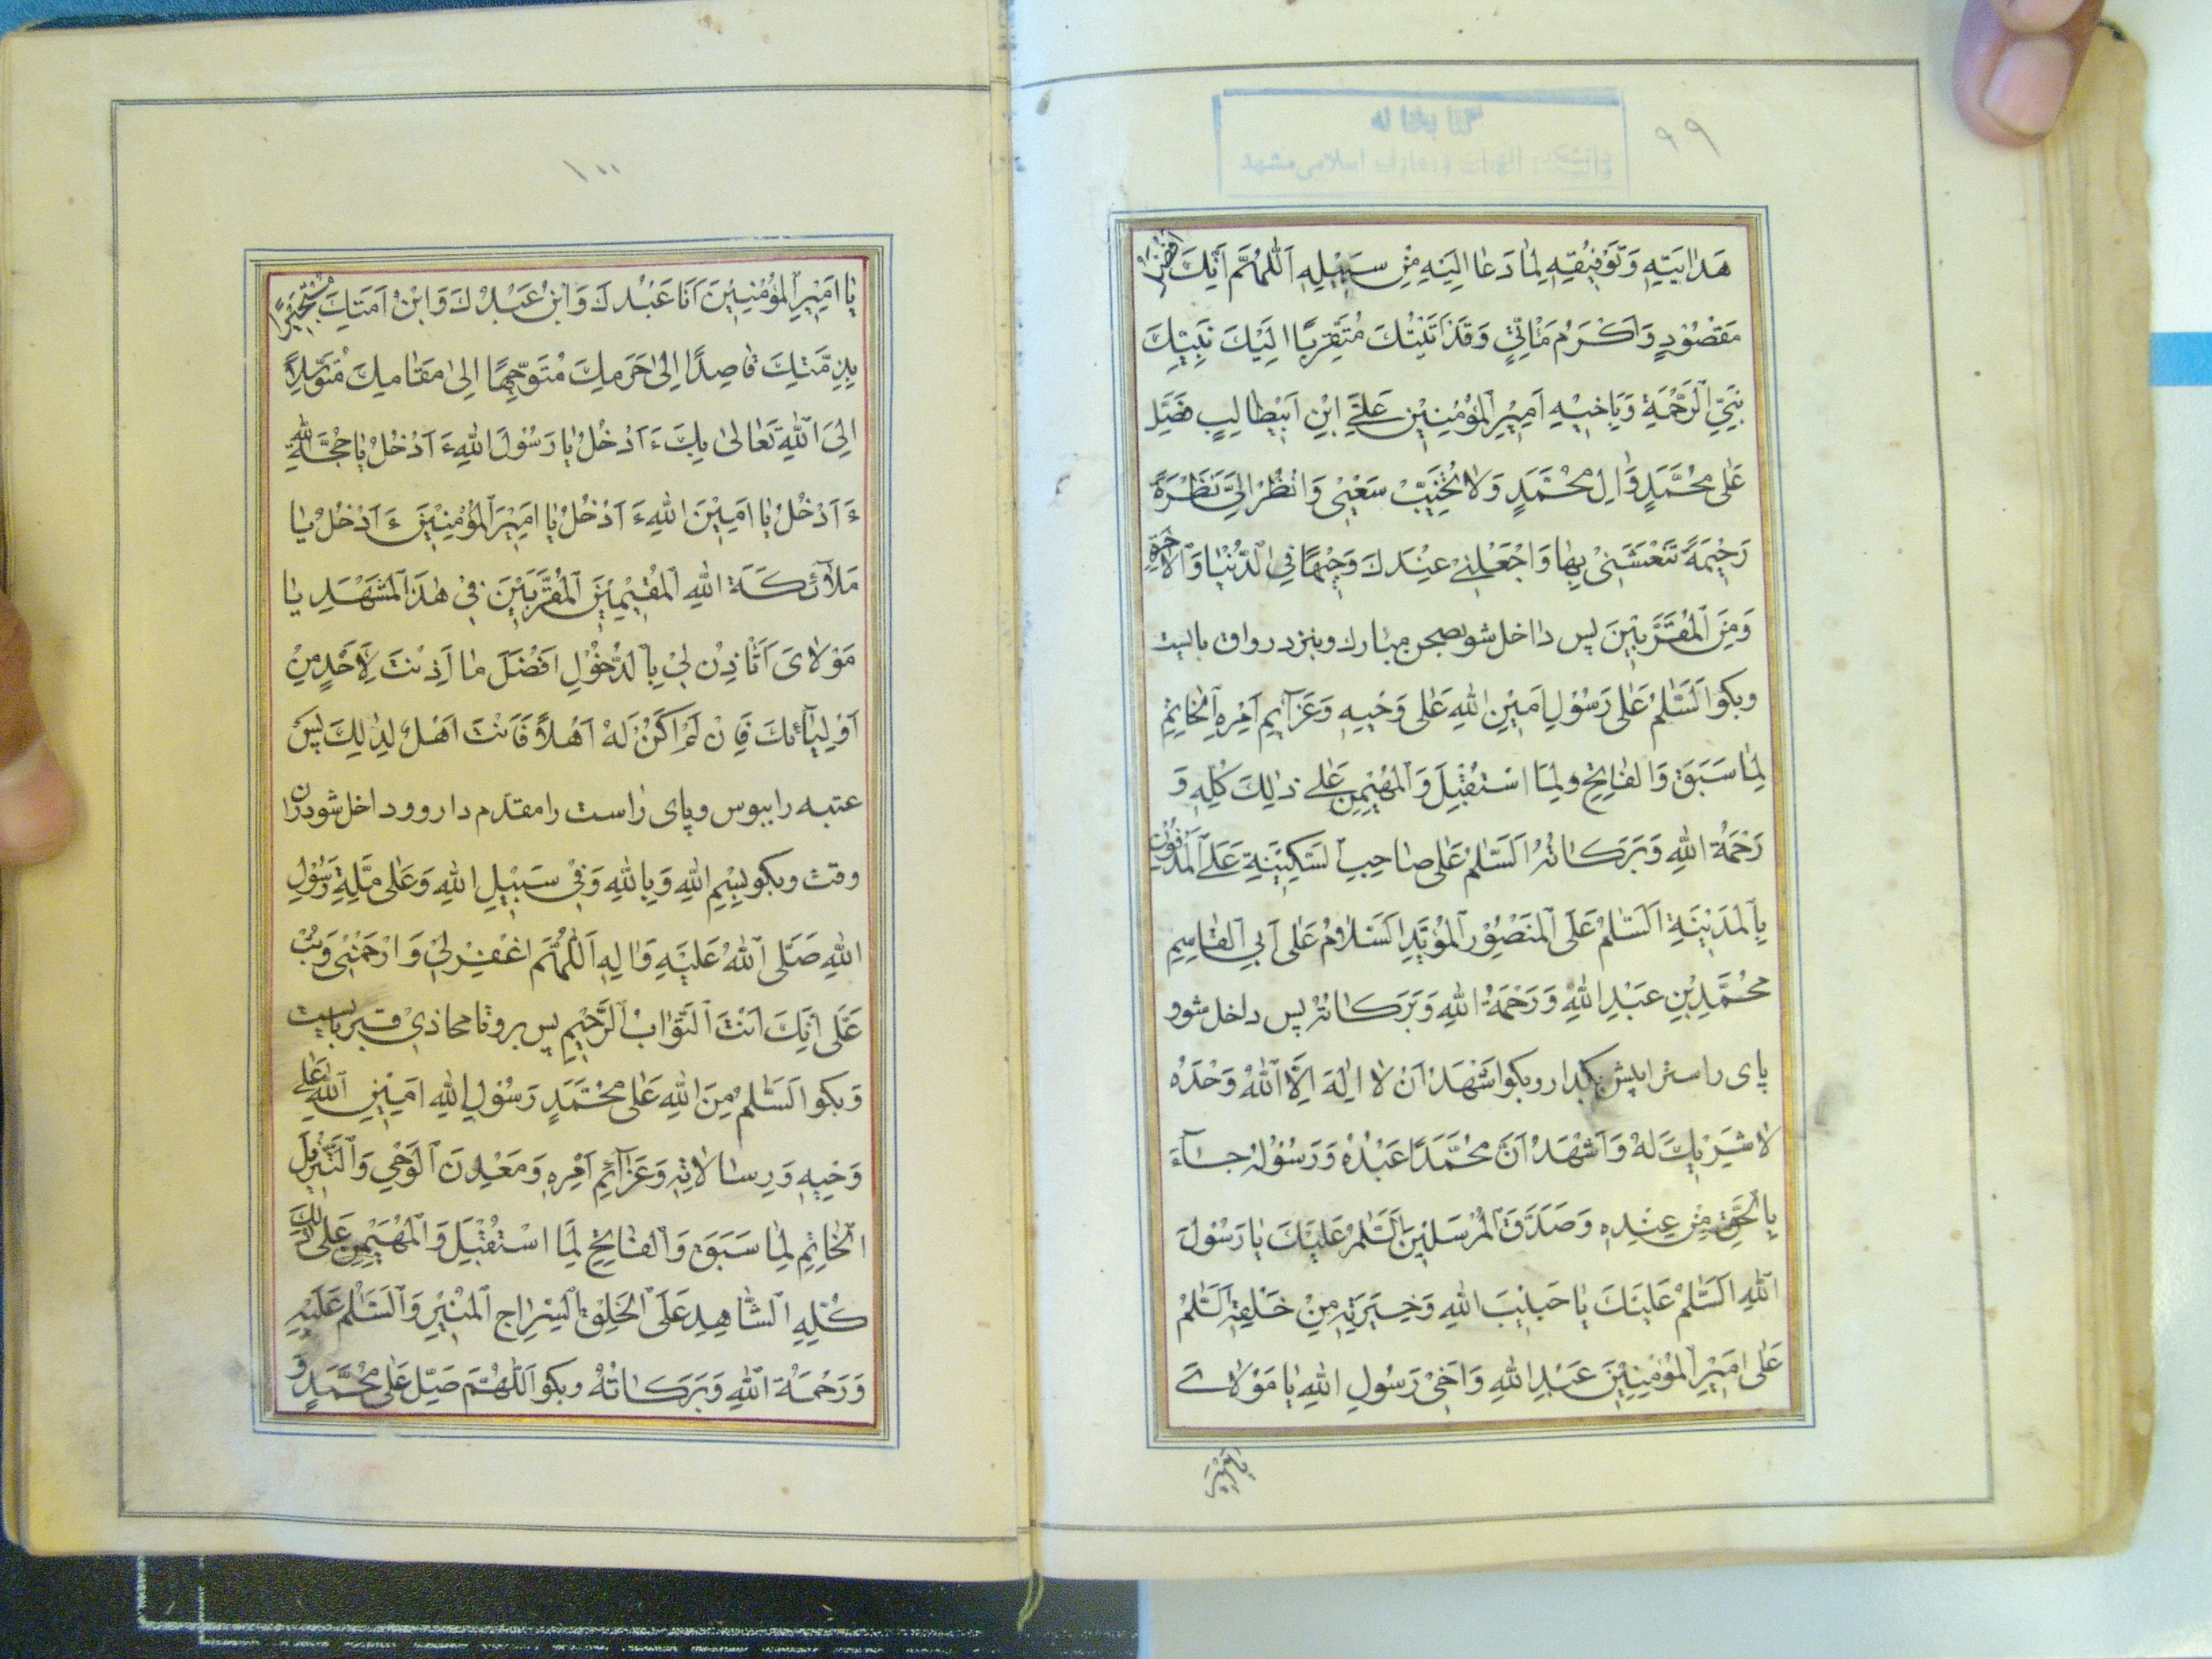 ۹۹
کتابخانه
دانشکده الهیات و معارف اسلامی مشهد
هَدٰايَتِهِ وَتَوْفِيْقِهِ لِمٰا دَعٰا اِلَيْهِ مِنْ سَبِيْلِهِ اَللّٰهُمَّ اِنَّكَ اَفْضَلُ
مَقْصُوْدٍ وَاَكْرَمُ مَاْتِيٍّ وَقَدْ اَتَيْتُكَ مُتَقَرِّبًا اِلَيْكَ بِنَبِيِّكَ
نَبِيِّ الرَّحْمَةِ وَبِاَخِيْهِ اَمِيْرِ الْمُؤْمِنِيْنَ عَلِيِّ ابْنِ اَبِيْطٰالِبٍ فَصَلِّ
عَلٰى مُحَمَّدٍ وَاٰلِ مُحَمَّدٍ وَلٰا تُخَيِّبْ سَعْيِيْ وَانْظُرْ اِلَيَّ نَظْرَةً
رَحِيْمَةً تَنْعَشُنِيْ بِهٰا وَاجْعَلْنِيْ عِنْدَكَ وَجِيْهًا فِي الدُّنْيٰا وَالْاٰخِرَةِ
وَمِنَ الْمُقَرَّبِيْنَ پس داخل شو بصحن مبارك و بنزد رواق بايست
وبكو اَلسَّلٰمُ عَلٰى رَسُوْلِ اَمِيْنِ اللهِ عَلٰى وَحْيِهِ وَعَزٰآئِمِ اَمْرِهِ الْخٰاتِمِ
لِمٰا سَبَقَ وَالْفٰاتِحِ ولِمَا اسْتُقْبِلَ وَالْمُهَيْمِنِ عَلٰى ذٰلِكَ كُلِّهِ وَ
رَحْمَةُ اللهِ وَبَرَكٰاتُهُ اَلسَّلٰمُ عَلٰى صٰاحِبِ السَّكِيْنَةِ عَلَى الْمَدْفُوْنِ
بِالْمَدِيْنَةِ اَلسَّلٰمُ عَلَى الْمَنْصُوْرِ الْمُؤَيَّدِ اَلسَّلٰامُ عَلٰى اَبِي الْقٰاسِمِ
مُحَمَّدِ بْنِ عَبْدِ اللهِ وَرَحْمَةُ اللهِ وَبَرَكٰاتُهُ پس داخل شو و
پاى راسترا پيش بكذار وبكو اَشْهَدُ اَنْ لٰا اِلٰهَ اِلَّا اللهُ وَحْدَهُ
لٰا شَرِيْكَ لَهُ وَاَشْهَدُ اَنَّ مُحَمَّدًا عَبْدُهُ وَرَسُوْلُهُ جٰآءَ
بِالْحَقِّ مِنْ عِنْدِهِ وَصَدَّقَ الْمُرْسَلِيْنَ اَلسَّلٰمُ عَلَيْكَ يٰا رَسُوْلَ
اللهِ اَلسَّلٰمُ عَلَيْكَ يٰا حَبِيْبَ اللهِ وَخِيَرَتِهِ مِنْ خَلْقِهِ اَلسَّلٰمُ
عَلٰى اَمِيْرِ الْمُؤْمِنِيْنَ عَبْدِ اللهِ وَاَخِيْ رَسُوْلِ اللهِ يٰا مَوْلٰاىَ
يا امير
۱۰۰
يٰا اَمِيْرَ الْمُؤْمِنِيْنَ اَنَا عَبْدُكَ وَابْنُ عَبْدِكَ وَابْنُ اَمَتِكَ مُسْتَجِيْرًا
بِذِمَّتِكَ قٰاصِدًا اِلٰى حَرَمِكَ مُتَوَجِّهًا اِلٰى مَقٰامِكَ مُتَوَسِّلًا
اِلَى اللهِ تَعٰالٰى بِكَ ءَاَدْخُلُ يٰا رَسُوْلَ اللهِ ءَاَدْخُلُ يٰا حُجَّةَ اللهِ
ءَاَدْخُلُ يٰا اَمِيْنَ اللهِ ءَاَدْخُلُ يٰا اَمِيْرَ الْمُؤْمِنِيْنَ ءَاَدْخُلُ يٰا
مَلٰآئِكَةَ اللهِ الْمُقِيْمِيْنَ الْمُقَرَّبِيْنَ فِيْ هٰذَا الْمَشْهَدِ يٰا
مَوْلٰاىَ اَتَاْذَنُ لِيْ بِالدُّخُوْلِ اَفْضَلَ مٰا اَذِنْتَ لِاَحَدٍ مِنْ
اَوْلِيٰآئِكَ فَاِنْ لَمْ اَكُنْ لَهُ اَهْلًا فَاَنْتَ اَهْلٌ لِذٰلِكَ پس
عتبه را ببوس و پاى راست را مقدم دار و داخل شو در ان
وقت وبكو بِسْمِ اللهِ وَبِاللهِ وَفِيْ سَبِيْلِ اللهِ وَعَلٰى مِلَّةِ رَسُوْلِ
اللهِ صَلَّى اللهُ عَلَيْهِ وَاٰلِهِ اَللّٰهُمَّ اغْفِرْ لِيْ وَارْحَمْنِيْ وَتُبْ
عَلَيَّ اِنَّكَ اَنْتَ التَّوّٰابُ الرَّحِيْمُ پس برو تا محاذى قبر بايست
وَبكو اَلسَّلٰمُ مِنَ اللهِ عَلٰى مُحَمَّدٍ رَسُوْلِ اللهِ اَمِيْنِ اللهِ عَلٰى
وَحْيِهِ وَرِسٰالٰاتِهِ وَعَزٰآئِمِ اَمْرِهِ وَمَعْدِنَ الْوَحْيِ وَالتَّنْزِيْلِ
الْخٰاتِمِ لِمٰا سَبَقَ وَالْفٰاتِحِ لِمَا اسْتُقْبِلَ وَالْمُهَيْمِنِ عَلٰى ذٰلِكَ
كُلِّهِ الشّٰاهِدِ عَلَى الْخَلْقِ السِّرٰاجِ الْمُنِيْرِ وَالسَّلٰمُ عَلَيْهِ
وَرَحْمَةُ اللهِ وَبَرَكٰاتُهُ وبكو اَللّٰهُمَّ صَلِّ عَلٰى مُحَمَّدٍ وَ